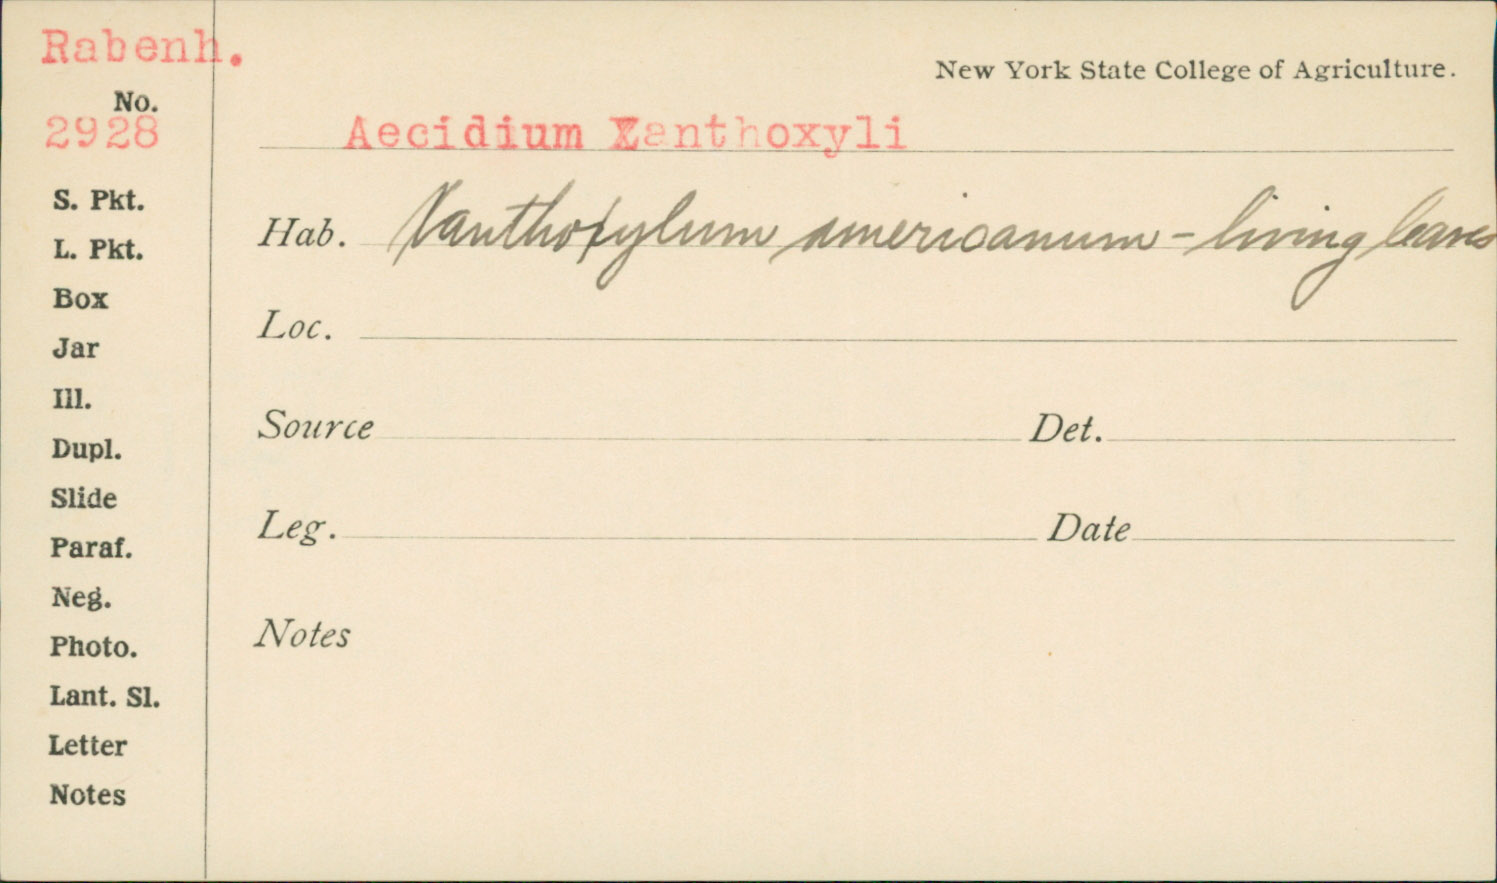 Rabenh.
New York State College of Agriculture.
No.
2928
Aecidium Xanthoxyli
S. Pkt.
Hab. Xanthoxylum americanum - living leaves
L. Pkt.
Box
Loc.
Jar
Ill.
Source Det.
Dupl.
Slide
Leg. Date
Paraf.
Neg.
Notes
Photo.
Lant. Sl.
Letter
Notes